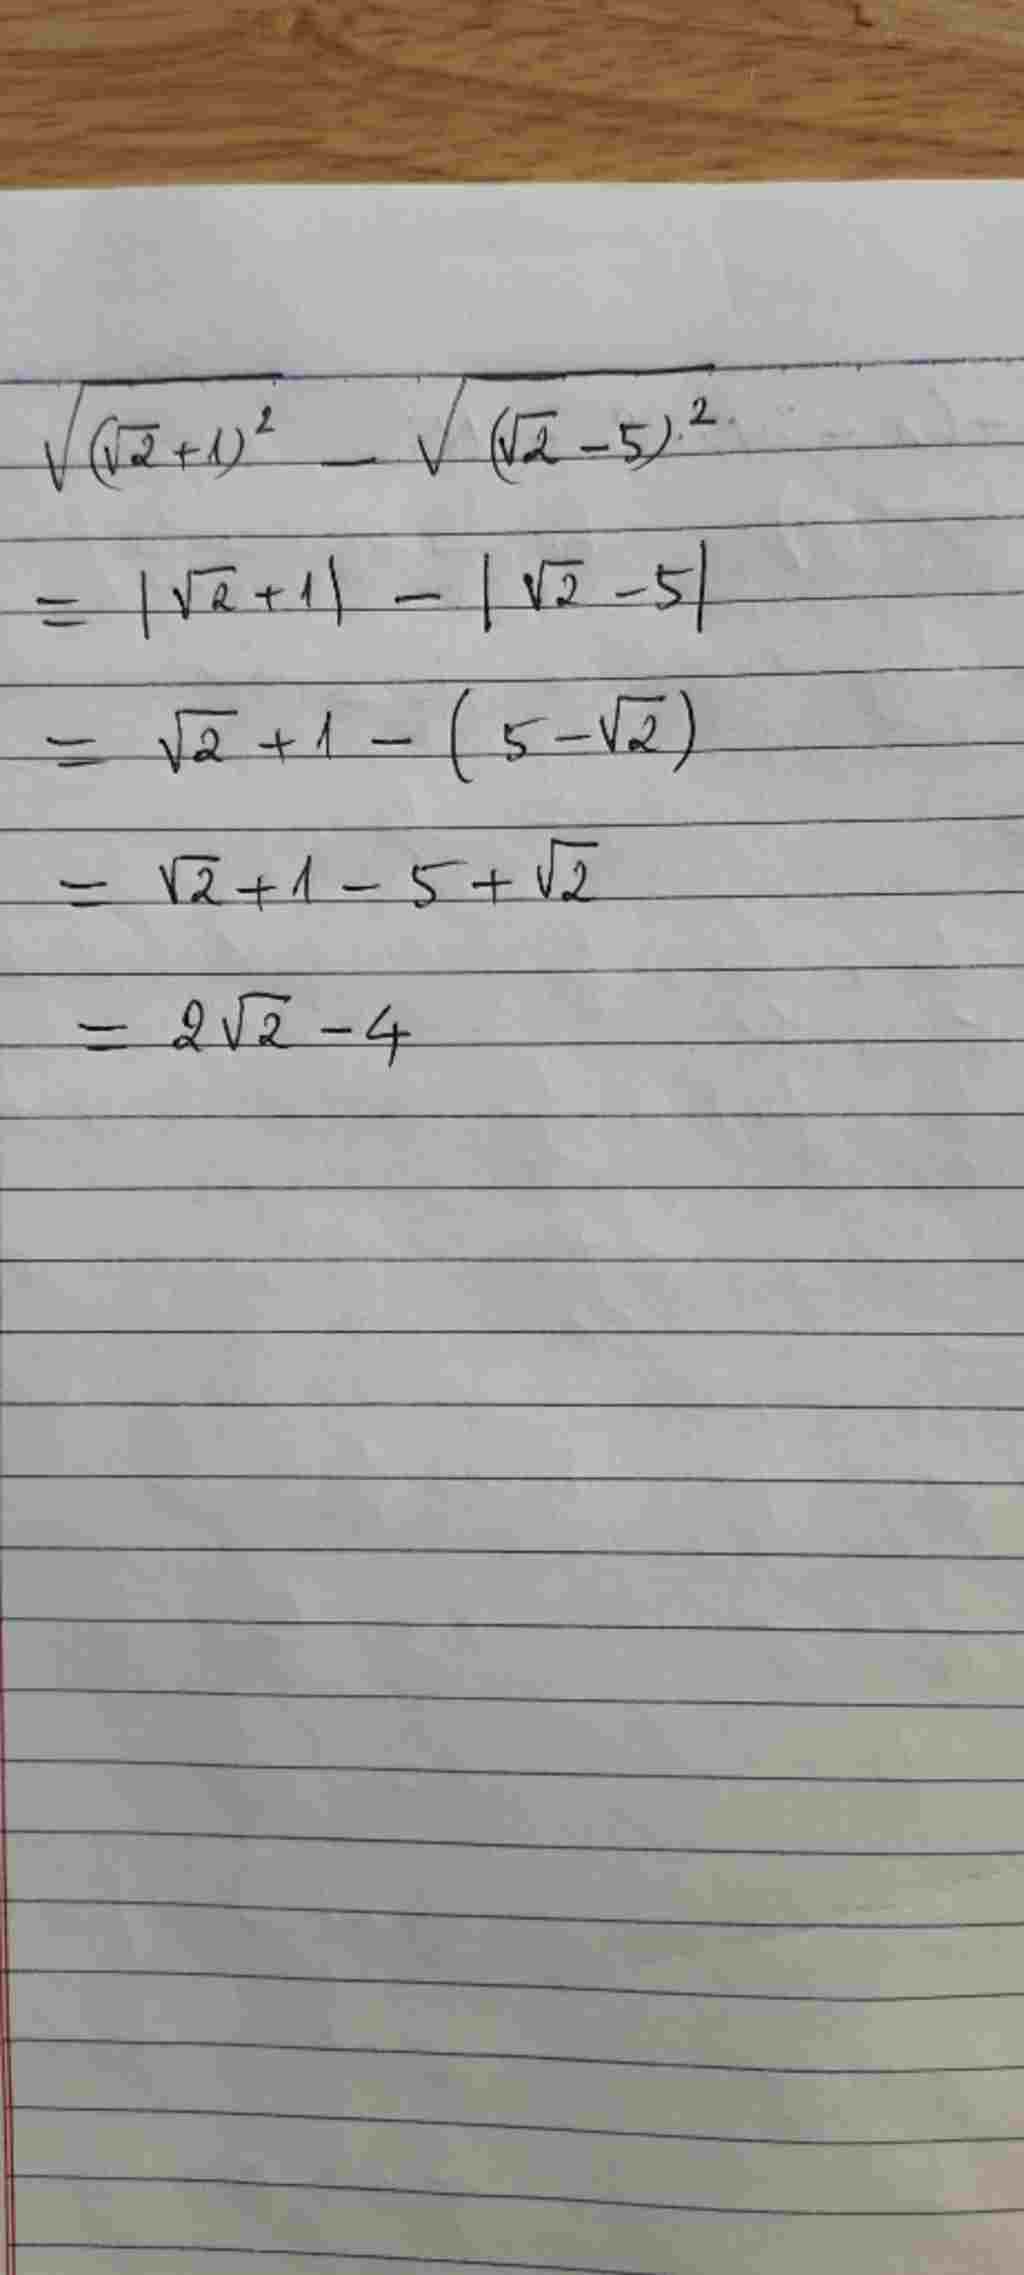 √(√2+1)² − √(√2−5)²
= |√2+1| − |√2−5|
= √2+1−(5−√2)
= √2+1−5+√2
= 2√2−4